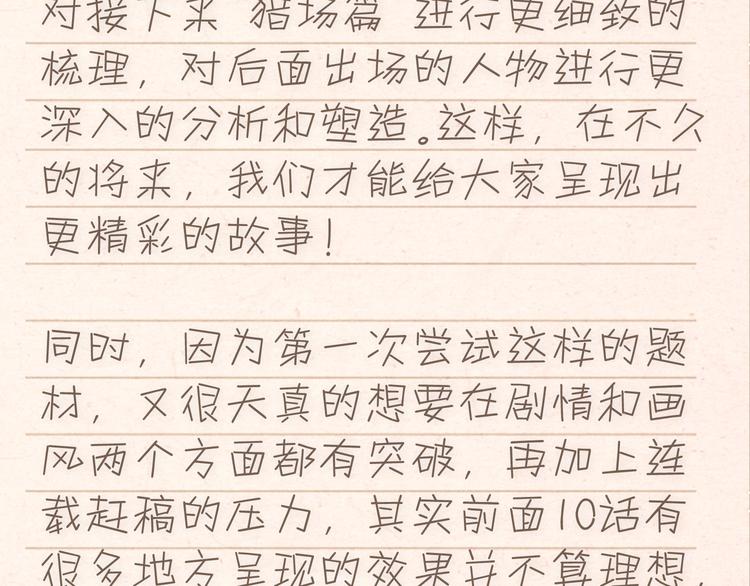 对接下来 猎场篇 进行更细致的
梳理，对后面出场的人物进行更
深入的分析和塑造。这样，在不久
的将来，我们才能给大家呈现出
更精彩的故事！
同时，因为第一次尝试这样的题
材，又很天真的想要在剧情和画
风两个方面都有突破，再加上连
载赶稿的压力，其实前面10话有
很多地方呈现的效果并不算理想，